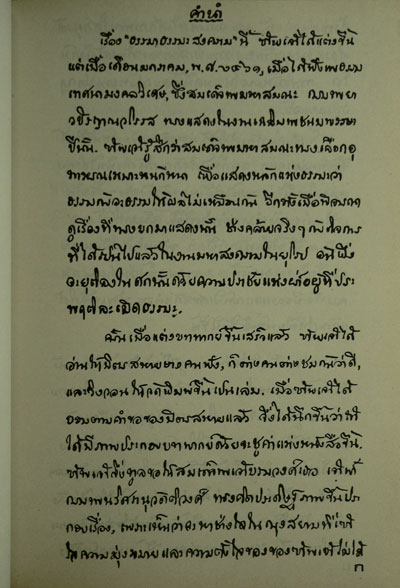 คำนำ
เรื่อง "ธรรมาธรรมะสงคราม" นี้ ข้าพเจ้าได้แต่งขึ้น
แต่เมื่อเดือนมกราคม, พ.ศ. ๒๔๖๑, เมื่อได้ฟังพระธรรม
เทศนามงคลวิเศษ, ซึ่งสมเด็จพระมหาสมณะ กรมพระยา
วชิรญาณวโรรส ทรงแสดงในงานเฉลิมพระชนมพรรษา
ปีนั้น. ข้าพเจ้ารู้สึกว่าสมเด็จพระมหาสมณะทรงเลือกอุ
ทาหรณ์เหมาะหนักหนา เพื่อแสดงหลักแห่งธรรมะว่า
ธรรมะกับอธรรมให้ผลไม่เหมือนกัน อีกทั้งเมื่อพิจารณา
ดูเรื่องที่ทรงยกมาแสดงนั้น ช่างคล้ายจริงๆ กับกิจการ
ที่ได้เป็นไปแล้วในงานมหาสงครามในยุโรป อันพึ่ง
จะยุติลงในศกนั้นด้วยความปราชัยแห่งฝ่ายผู้ที่ประ
พฤติละเมิดธรรมะ.
ครั้นเมื่อแต่งบทพากย์ขึ้นเสร็จแล้ว ข้าพเจ้าได้
อ่านให้มิตรสหายบางคนฟัง, ก็ต่างคนต่างชมกันว่าดี,
และวิงวอนให้จัดพิมพ์ขึ้นเป็นเล่ม. เมื่อข้าพเจ้าได้
ยอมตามคำขอของมิตรสหายแล้ว จึ่งได้นึกขึ้นว่าถ้า
ได้มีภาพประกอบบทพากย์ด้วยจะชูค่าแห่งหนังสือขึ้น.
ข้าพเจ้าจึ่งทูลขอให้สมเด็จพระเจ้าบรมวงศ์เธอ เจ้าฟ้า
กรมพระนริศรานุวัดติวงศ์ ทรงคิดประดิษฐ์ภาพขึ้นประ
กอบเรื่อง, เพราะเห็นว่าจะหาช่างใดในกรุงสยามที่เข้า
ใจความมุ่งหมายและความตั้งใจของข้าพเจ้าไม่ได้
ก